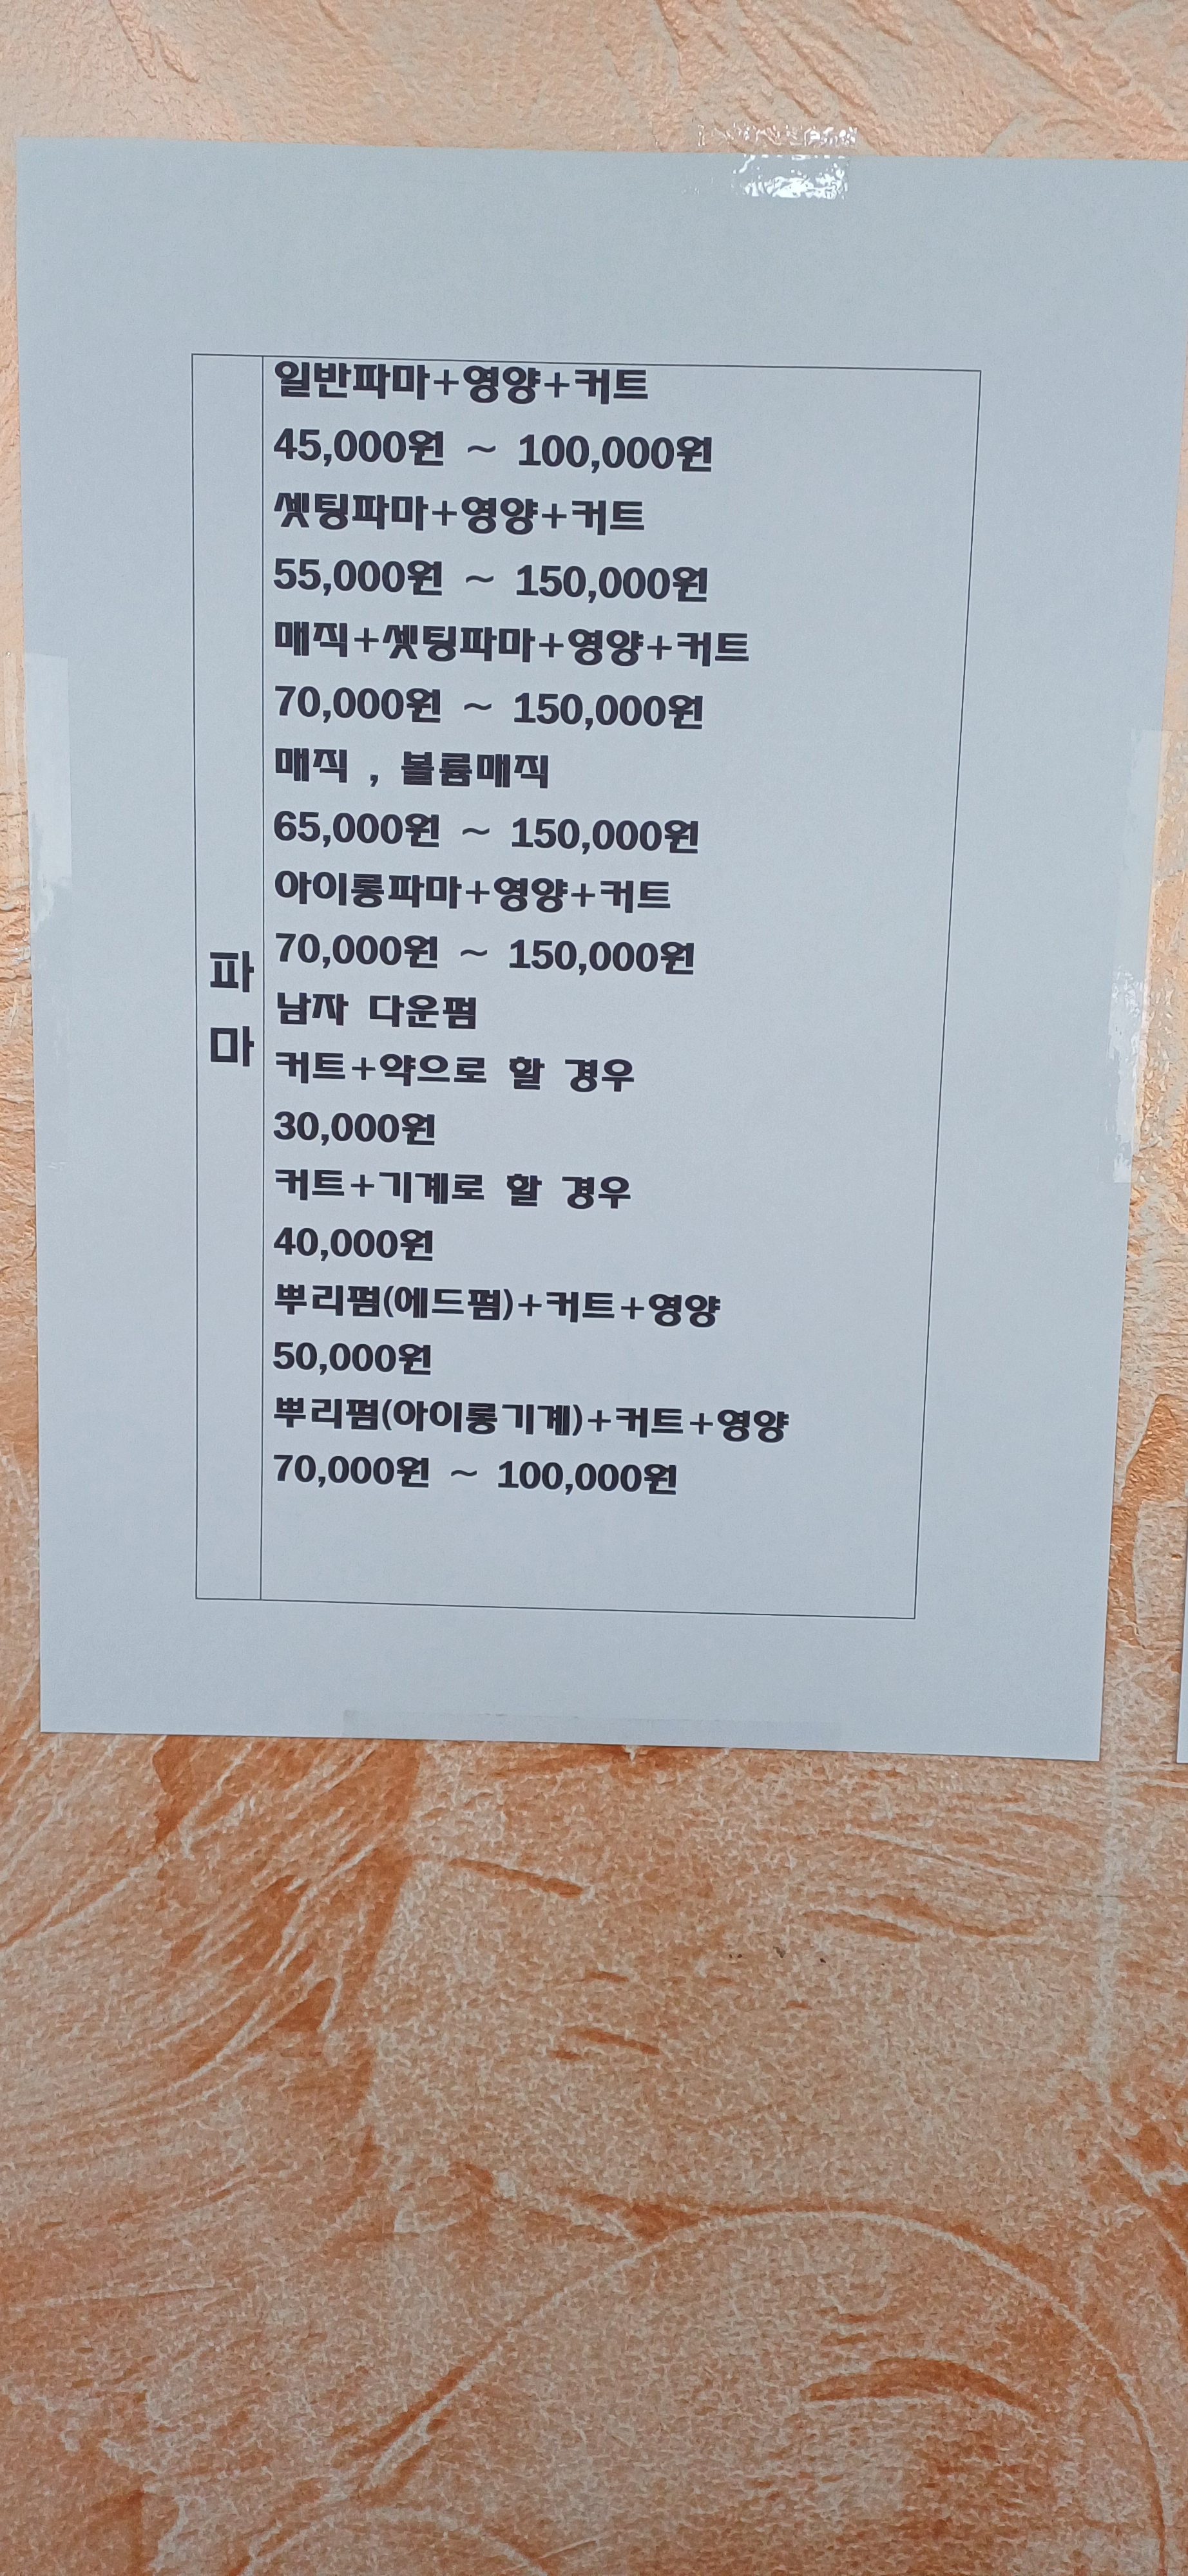 파
마
일반파마+영양+커트
45,000원 ~ 100,000원
셋팅파마+영양+커트
55,000원 ~ 150,000원
매직+셋팅파마+영양+커트
70,000원 ~ 150,000원
매직 , 볼륨매직
65,000원 ~ 150,000원
아이롱파마+영양+커트
70,000원 ~ 150,000원
남자 다운펌
커트+약으로 할 경우
30,000원
커트+기계로 할 경우
40,000원
뿌리펌(에드펌)+커트+영양
50,000원
뿌리펌(아이롱기계)+커트+영양
70,000원 ~ 100,000원